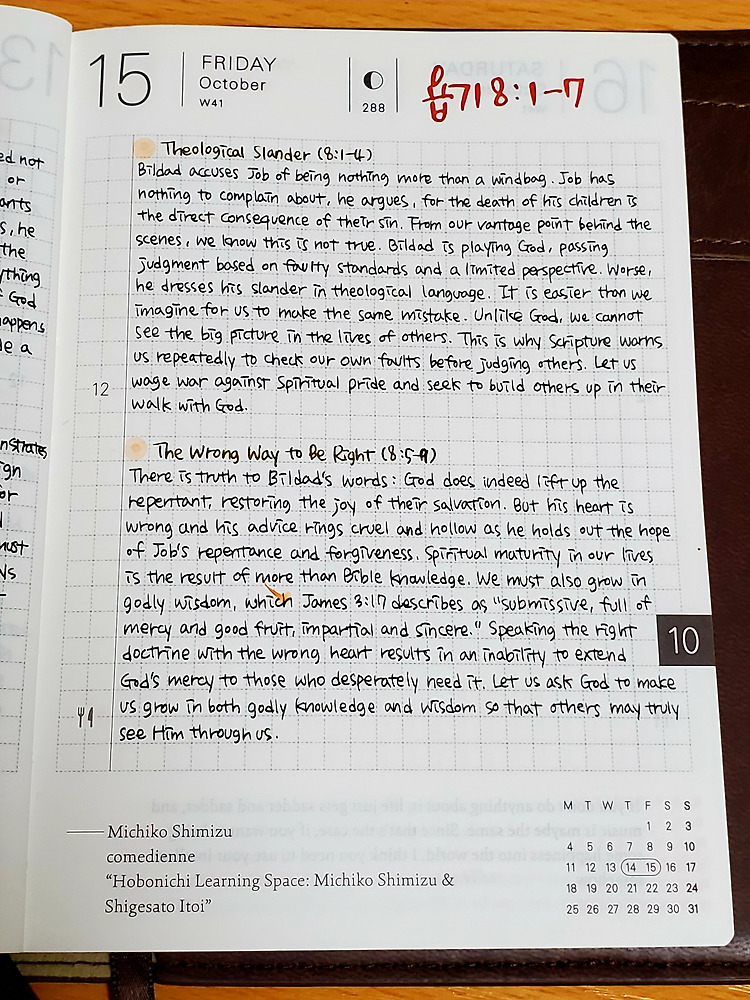 13
ed not
or
ants
s, he
the
ything
God
appens
le a
nstrates
ign
or
must
15
FRIDAY
October
W41
288
욥기 8:1-7
Theological Slander (8:1-4)
Bildad accuses Job of being nothing more than a windbag. Job has
nothing to complain about, he argues, for the death of his children is
the direct consequence of their sin. From our vantage point behind the
scenes, we know this is not true. Bildad is playing God, passing
judgment based on faulty standards and a limited perspective. Worse,
he dresses his slander in theological language. It is easier than we
imagine for us to make the same mistake. Unlike God, we cannot
see the big picture in the lives of others. This is why Scripture warns
us repeatedly to check our own faults before judging others. Let us
12
wage war against Spiritual pride and seek to build others up in their
walk with God.
The Wrong Way to Be Right (8:5-9)
There is truth to Bildad's words: God does indeed lift up the
repentant, restoring the joy of their salvation. But his heart is
wrong and his advice rings cruel and hollow as he holds out the hope
of Job's repentance and forgiveness. Spiritual maturity in our lives
is the result of more than Bible knowledge. We must also grow in
godly wisdom, which James 3:17 describes as "submissive, full of
mercy and good fruit, impartial and sincere." Speaking the right
doctrine with the wrong heart results in an inability to extend
God's mercy to those who desperately need it. Let us ask God to make
us grow in both godly knowledge and wisdom so that others may truly
see Him through us.
10
Michiko Shimizu
comedienne
"Hobonichi Learning Space: Michiko Shimizu &
Shigesato Itoi"
M T W T F S S
1 2 3
4 5 6 7 8 9 10
11 12 13 14 15 16 17
18 19 20 21 22 23 24
25 26 27 28 29 30 31